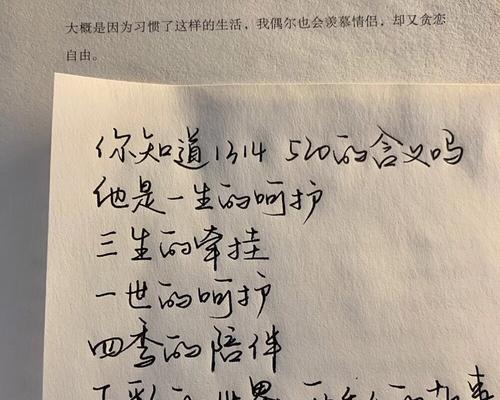 大概是因为习惯了这样的生活，我偶尔也会羡慕情侣，却又贪恋
自由。
你知道1314 520的含义吗
他是一生的呵护
三生的牵挂
一世的呵护
四季的陪伴